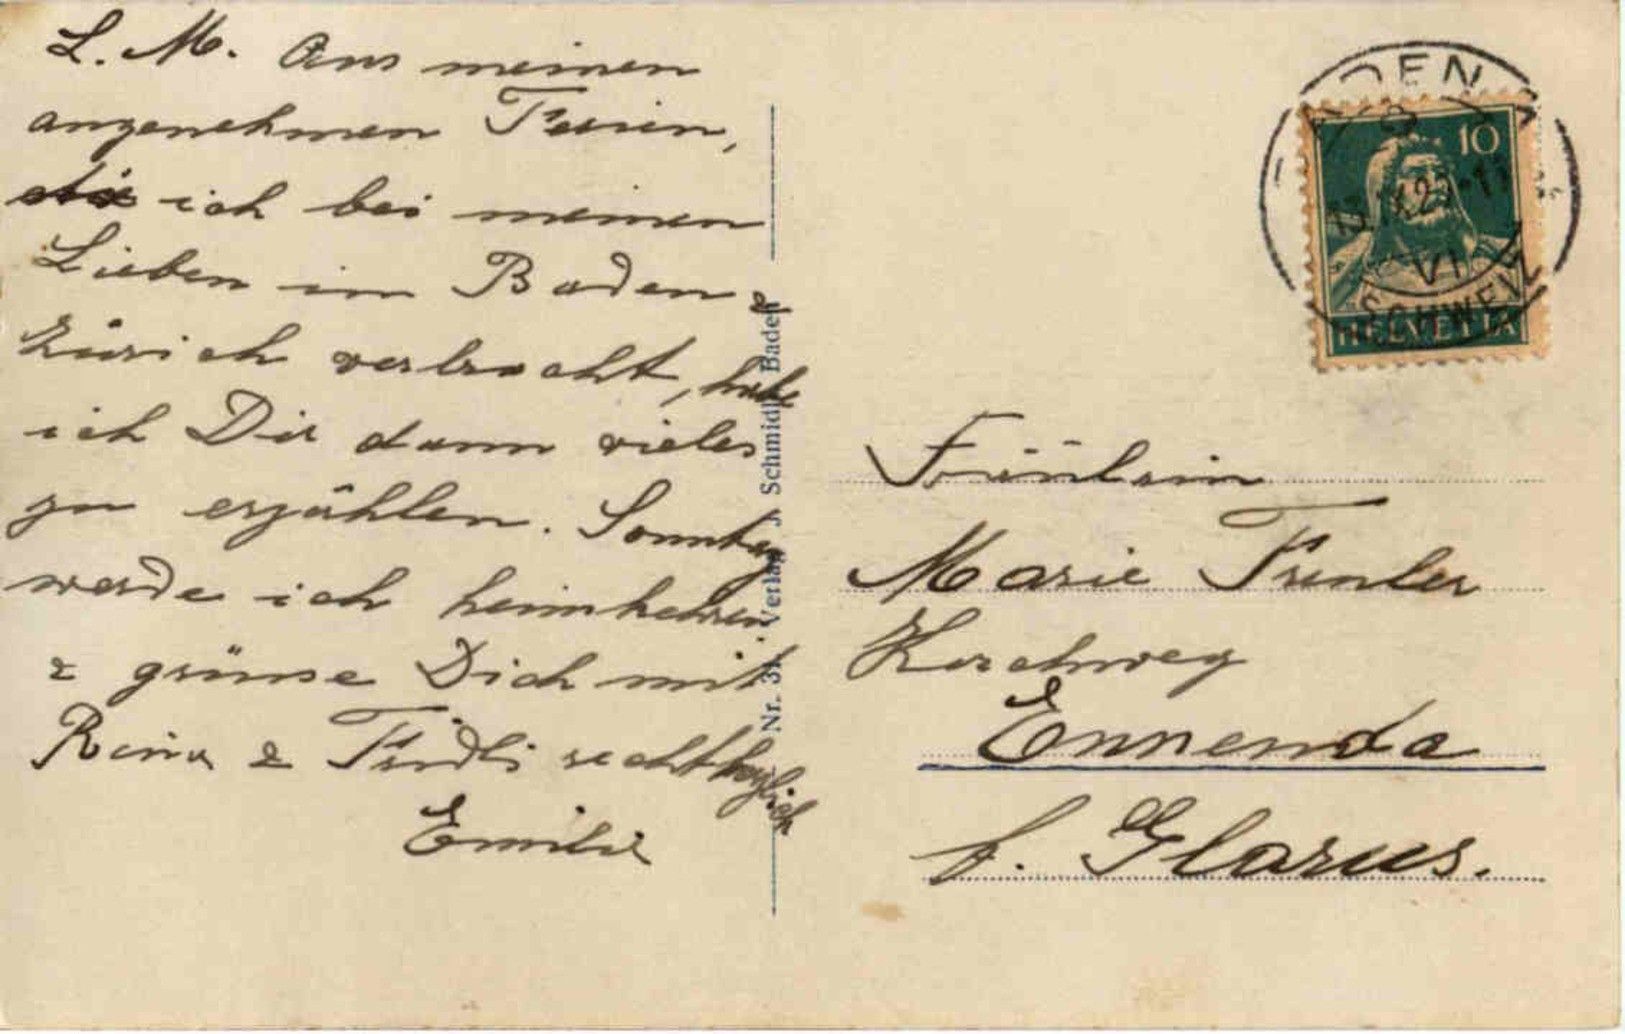 L. M. Aus meinen
angenehmen Ferien,
die ich bei meinen
Lieben in Baden &
Zürich verbracht, habe
ich Dir dann vieles
zu erzählen. Sonntag
werde ich heimkehren
& grüsse Dich mit
& Fridli recht herzlich
Emilie
Nr. 31 Verlag J. Schmidli Baden
10
VI
SCHWEIZ
HELVETIA
Fräulein
Marie
Kirchweg
Ennenda
b. Glarus.